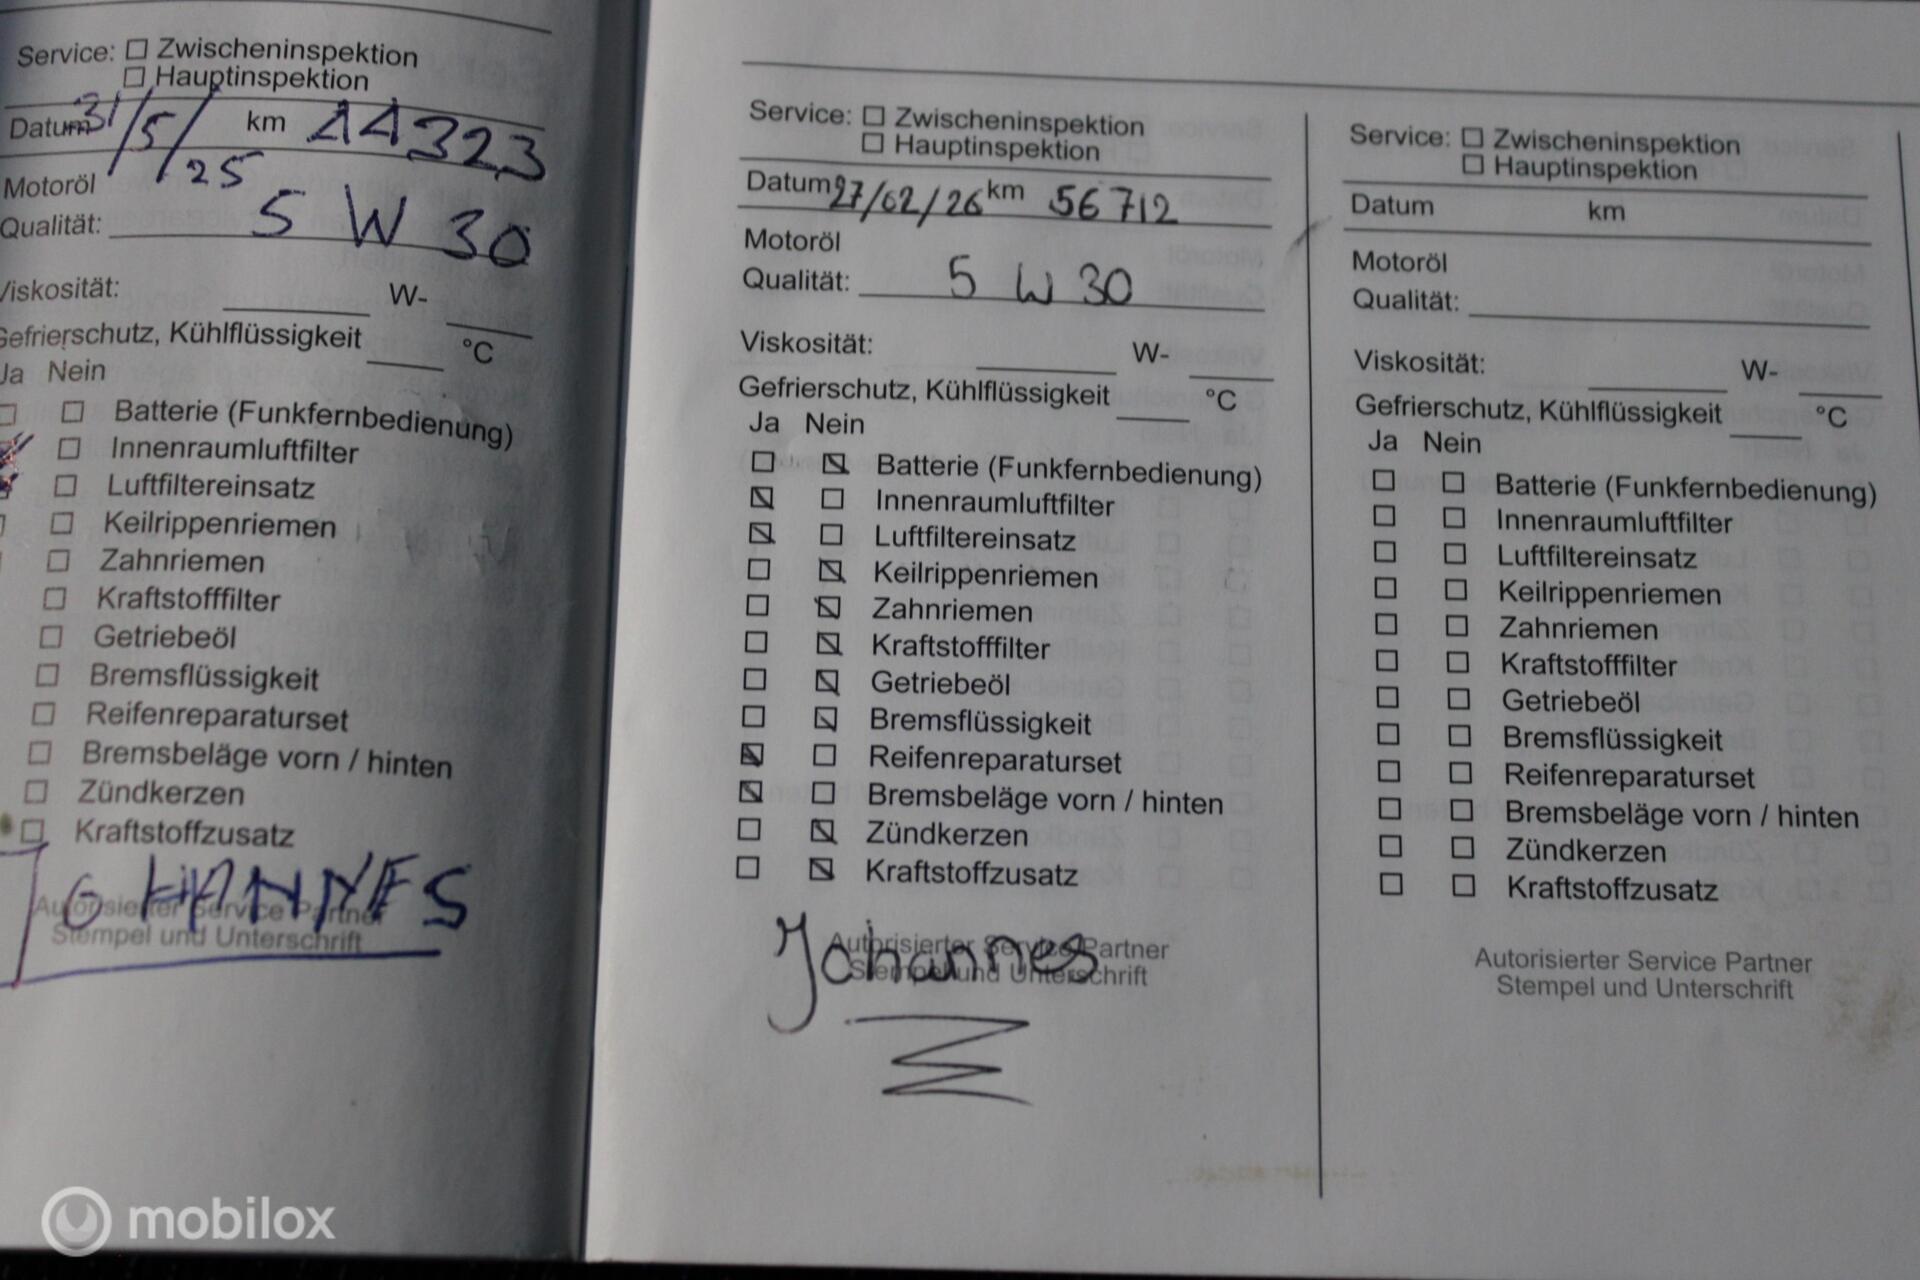 Service: Zwischeninspektion
Hauptinspektion
Datum 31/5/25 km 44323
Motoröl
Qualität: 5 W 30
Viskosität: W-
Gefrierschutz, Kühlflüssigkeit °C
Ja Nein
Batterie (Funkfernbedienung)
Innenraumluftfilter
Luftfiltereinsatz
Keilrippenriemen
Zahnriemen
Kraftstofffilter
Getriebeöl
Bremsflüssigkeit
Reifenreparaturset
Bremsbeläge vorn / hinten
Zündkerzen
Kraftstoffzusatz
JOHANNES
Autorisierter Service Partner
Stempel und Unterschrift
Service: Zwischeninspektion
Hauptinspektion
Datum 27/02/26 km 56712
Motoröl
Qualität: 5 W 30
Viskosität: W-
Gefrierschutz, Kühlflüssigkeit °C
Ja Nein
Batterie (Funkfernbedienung)
Innenraumluftfilter
Luftfiltereinsatz
Keilrippenriemen
Zahnriemen
Kraftstofffilter
Getriebeöl
Bremsflüssigkeit
Reifenreparaturset
Bremsbeläge vorn / hinten
Zündkerzen
Kraftstoffzusatz
Johannes
Autorisierter Service Partner
Stempel und Unterschrift
Service: Zwischeninspektion
Hauptinspektion
Datum km
Motoröl
Qualität:
Viskosität: W-
Gefrierschutz, Kühlflüssigkeit °C
Ja Nein
Batterie (Funkfernbedienung)
Innenraumluftfilter
Luftfiltereinsatz
Keilrippenriemen
Zahnriemen
Kraftstofffilter
Getriebeöl
Bremsflüssigkeit
Reifenreparaturset
Bremsbeläge vorn / hinten
Zündkerzen
Kraftstoffzusatz
Autorisierter Service Partner
Stempel und Unterschrift
mobilox